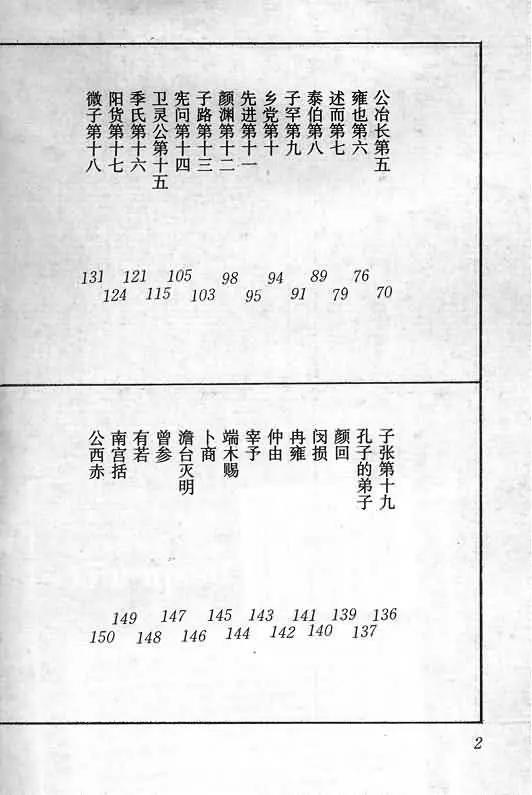 公冶长第五 70
雍也第六 76
述而第七 79
泰伯第八 89
子罕第九 91
乡党第十 94
先进第十一 95
颜渊第十二 98
子路第十三 103
宪问第十四 105
卫灵公第十五 115
季氏第十六 121
阳货第十七 124
微子第十八 131
子张第十九 136
孔子的弟子 137
颜回 139
闵损 140
冉雍 141
仲由 142
宰予 143
端木赐 144
卜商 145
澹台灭明 146
曾参 147
有若 148
南宫括 149
公西赤 150
2